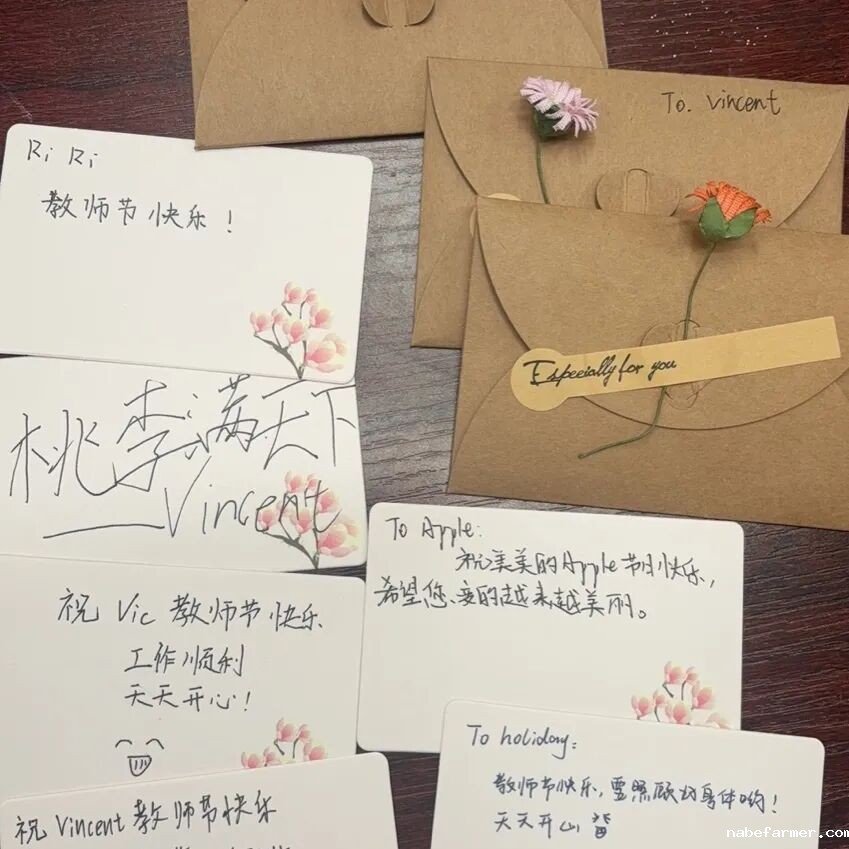 To. Vincent
Especially for you
Ri Ri
教师节快乐！
桃李满天下
——Vincent
祝 Vic 教师节快乐
工作顺利
天天开心！
To Apple:
祝美美的Apple节日快乐，
希望您变的越来越美丽。
To holiday:
教师节快乐，要照顾好身体哟！
天天开心
祝 Vincent 教师节快乐
nabefarmer.com